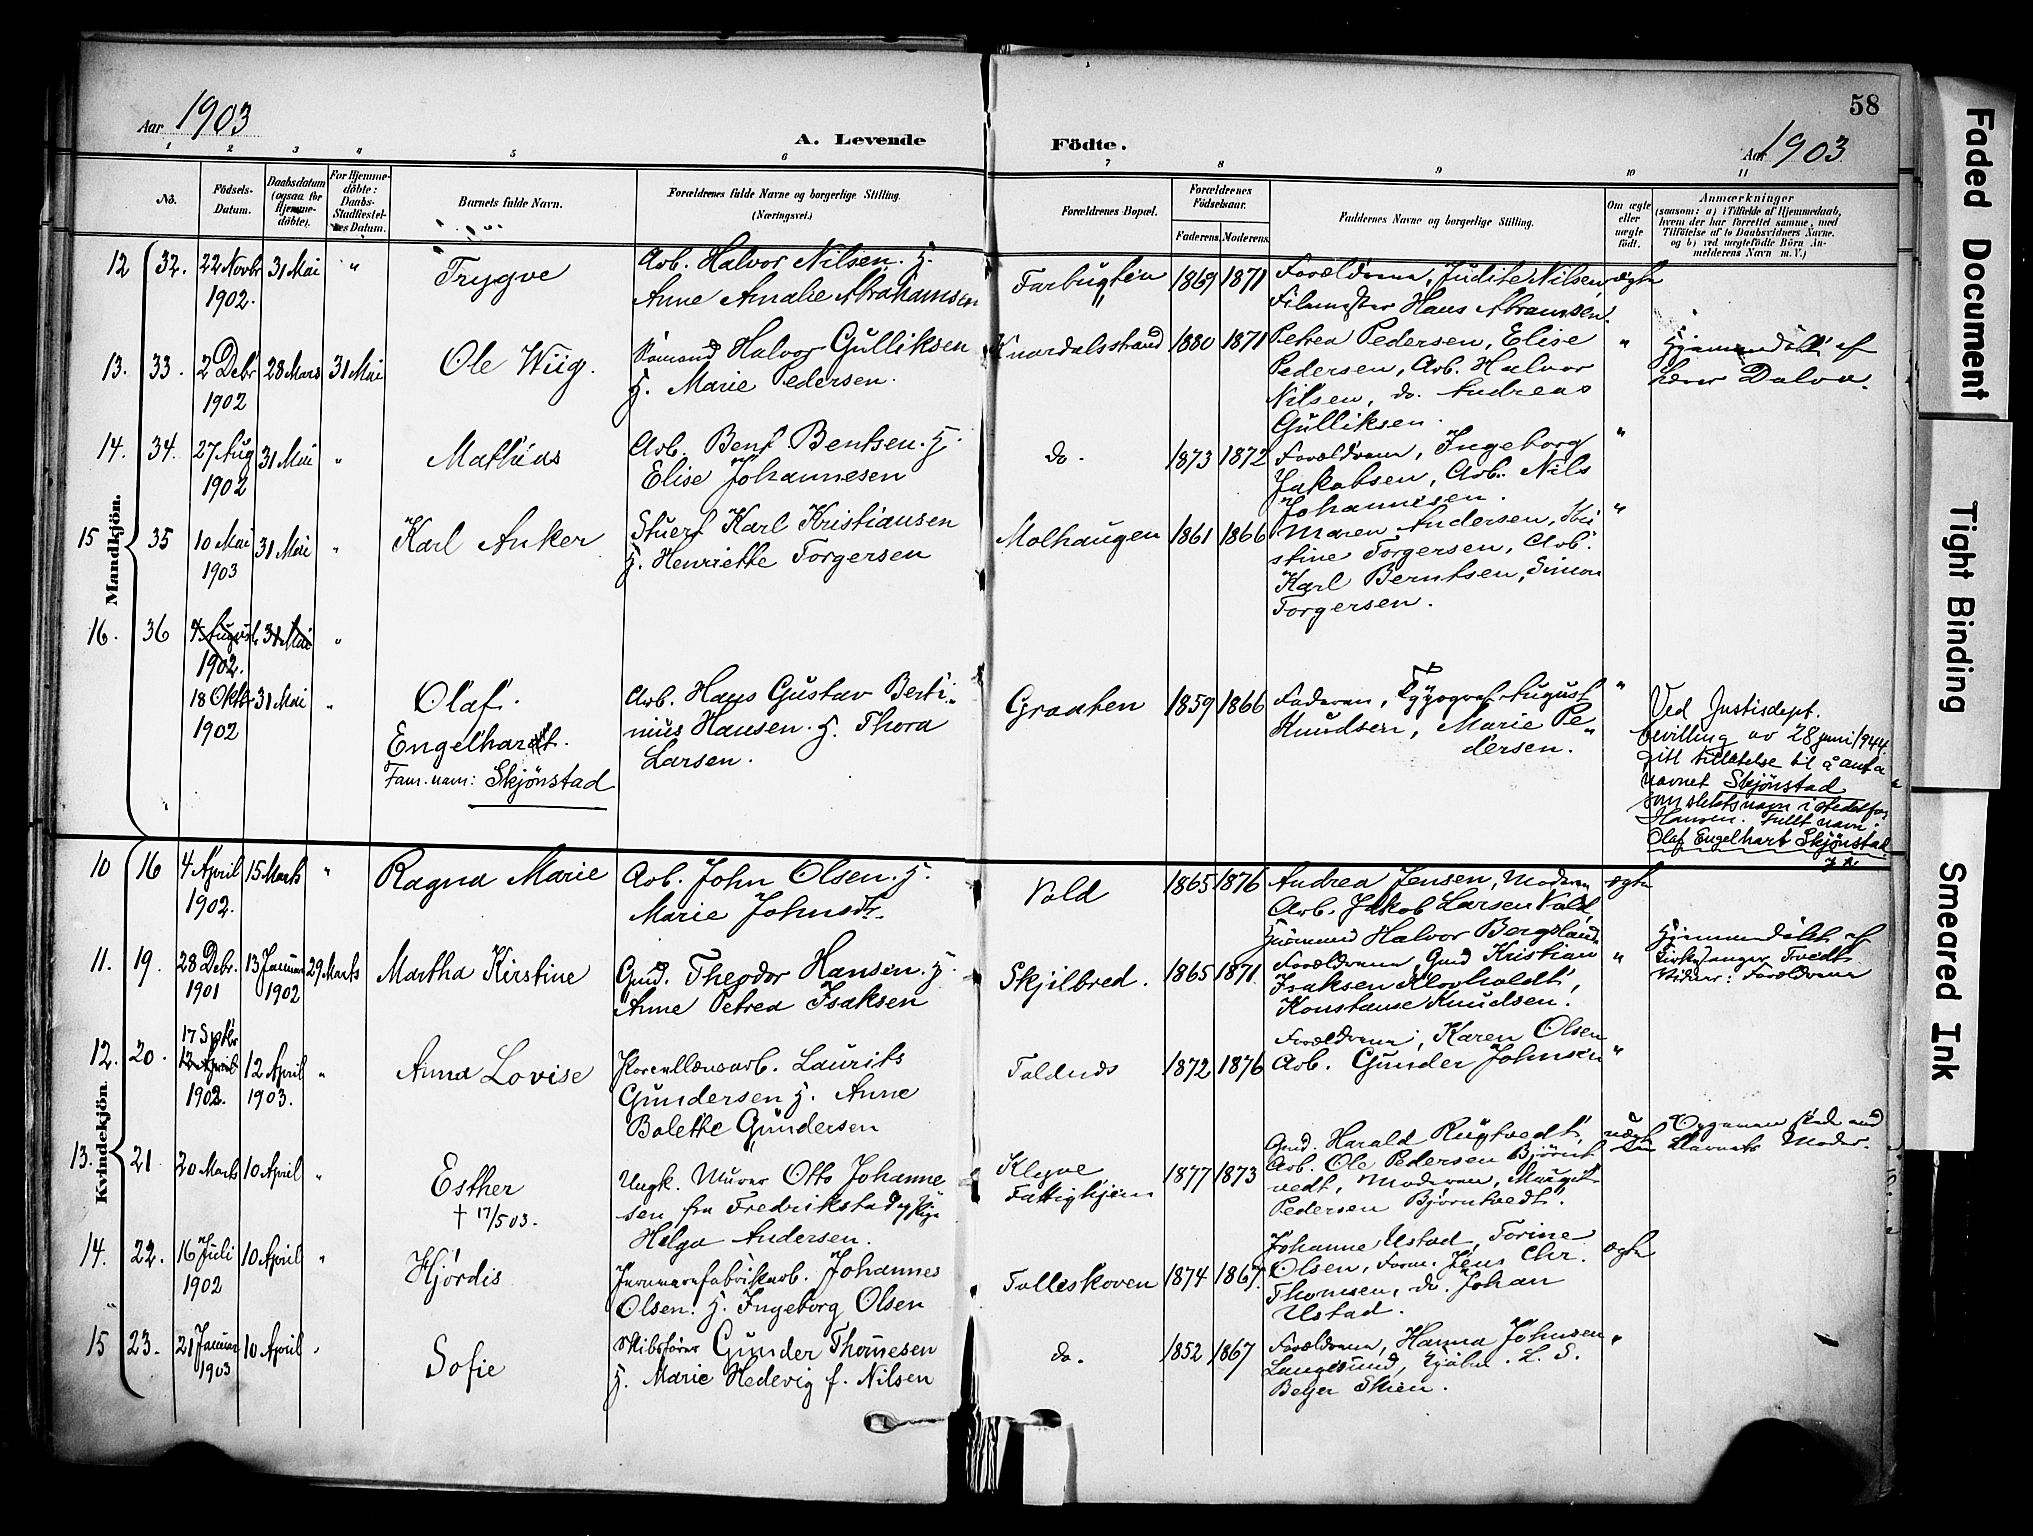 Aar 1903
A. Levende
Födte.
Aar 1903
58
1 2 3 4 5 6 7 8 9 10 11
No.
Födsels-
Datum.
Daabsdatum
(ogsaa for
Hjemme-
döbte).
For Hjemme-
döbte:
Daabs-
Stadfæstel-
ses Datum.
Barnets fulde Navn.
Forældrenes fulde Navne og borgerlige Stilling.
(Næringsvei.)
Forældrenes Bopæl.
Forældrenes
Födselsaar.
Faderens. Moderens.
Faddernes Navne og borgerlige Stilling.
Om ægte
eller
uægte
födt.
Anmærkninger
(saasom: a) i Tilfælde af Hjemmedaab,
hvem der har forrettet samme, med
Tilföielse af to Daabsvidners Navne.
og b) ved uægtefödte Börn An-
melderens Navn m.V.)
Mandkjön.
12 32. 22 Novbr 31 Mai " Trygve
1902.
Arb. Halvor Nilsen. H.
Anne Amalie Abrahamsen
1869 1871
Forældrene, Judite Nilsen ægte
Hans Abramsen.
13. 33. 2 Debr 28 Mars 31 Mai Ole Wiig.
1902
Sömand Halvor Gulliksen
H. Marie Pedersen.
Knardalsstrand 1880 1871
Petrea Pedersen, Elise "
Pedersen, Arb. Halvor
Nilsen, do. Andreas
Gulliksen.
Hjemmedöbt af
Lærer Dalva.
14. 34. 27 Aug 31 Mai " Mathias
1902
Arb. Bent Bentsen. H.
Elise Johannesen
do. 1873 1872
Forældrene, Ingeborg "
Jakobsen, Arb. Nils
Johannesen.
15 35 10 Mai 31 Mai " Karl Anker
1903
Stuert Karl Kristiansen
H. Henriette Torgersen
Molhaugen 1861 1866
Maren Andersen, Kri "
stine Torgersen, Arb.
Karl Berntsen, Simon
Torgersen.
16. 36 31 Mai "
1902.
18 Oktbr 31 Mai " Olaf.
1902
Engelhardt.
Fam. nam: Skjönstad
Arb. Hans Gustav Berti-
nius Hansen. H. Thora
Larsen.
Graaten 1859 1866
Faderen, Typograf August "
Knudsen, Marie Pe-
dersen.
Ved Justisdept.
bevilling av 28 juni 1944
gitt tillatelse til å anta
navnet Skjönstad
som slektsnavn i stedet for
Hansen. Fullt navn:
Olaf Engelhart Skjönstad.
Kvindekjön.
10 16 4 April 15 Marts " Ragna Marie
1902.
Arb. John Olsen. H.
Marie Johnsdr.
Vold 1865 1876
Andrea Jensen, Moderen ægte
Arb. Jakob Larsen Vold,
Halvor Bergsland.
11. 19. 28 Debr. 13 Januar 29 Marts Martha Kirstine
1901 1902
Gmd. Theodor Hansen. H.
Anne Petrea Isaksen
Skjilbred. 1865 1871
Forældrene, Gmd Kristian "
Isaksen Klovholdt,
Konstanse Knudsen.
Hjemmedöbt af
Kirkesanger Tvedt
Vidner: Forældrene
12. 20. 17 Septbr
12 April 12 April " Anna Lovise
1902. 1903.
Porcellænsarb. Laurits
Gundersen H. Anne
Bolette Gundersen
Foldnes 1872 1876
Forældrene, Karen Olsen
Arb. Gunder Johnsen "
13. 21 20 Marts 10 April " Esther
† 17/5 03.
Ungk. Murer Otto Johanne
sen fra Fredrikstad og Pige
Helga Andersen.
Klyve
Fattighjem
1877 1873
Gmd. Harald Rugtvedt,
Arb. Ole Pedersen Björnt
vedt, Moderen, Margit
Pedersen Björntvedt.
Moder.
14. 22. 16 Juli 10 April " Hjördis
1902
Johannes
Olsen. H. Ingeborg Olsen
Tolleskoven 1874 1867
Johanne Ustad, Torine ægte
Olsen, Form. Jens Chr.
Thomsen, do. Johan
Ustad.
15 23. 21 Januar 10 April " Sofie
1903
Skibsförer Gunder Thomesen
H. Marie Hedevig f. Nilsen
do. 1852 1867
Forældrene, Hanna Johnsen "
Langesund, L. S.
Beyer Skien.
Faded Document
Tight Binding
Smeared Ink